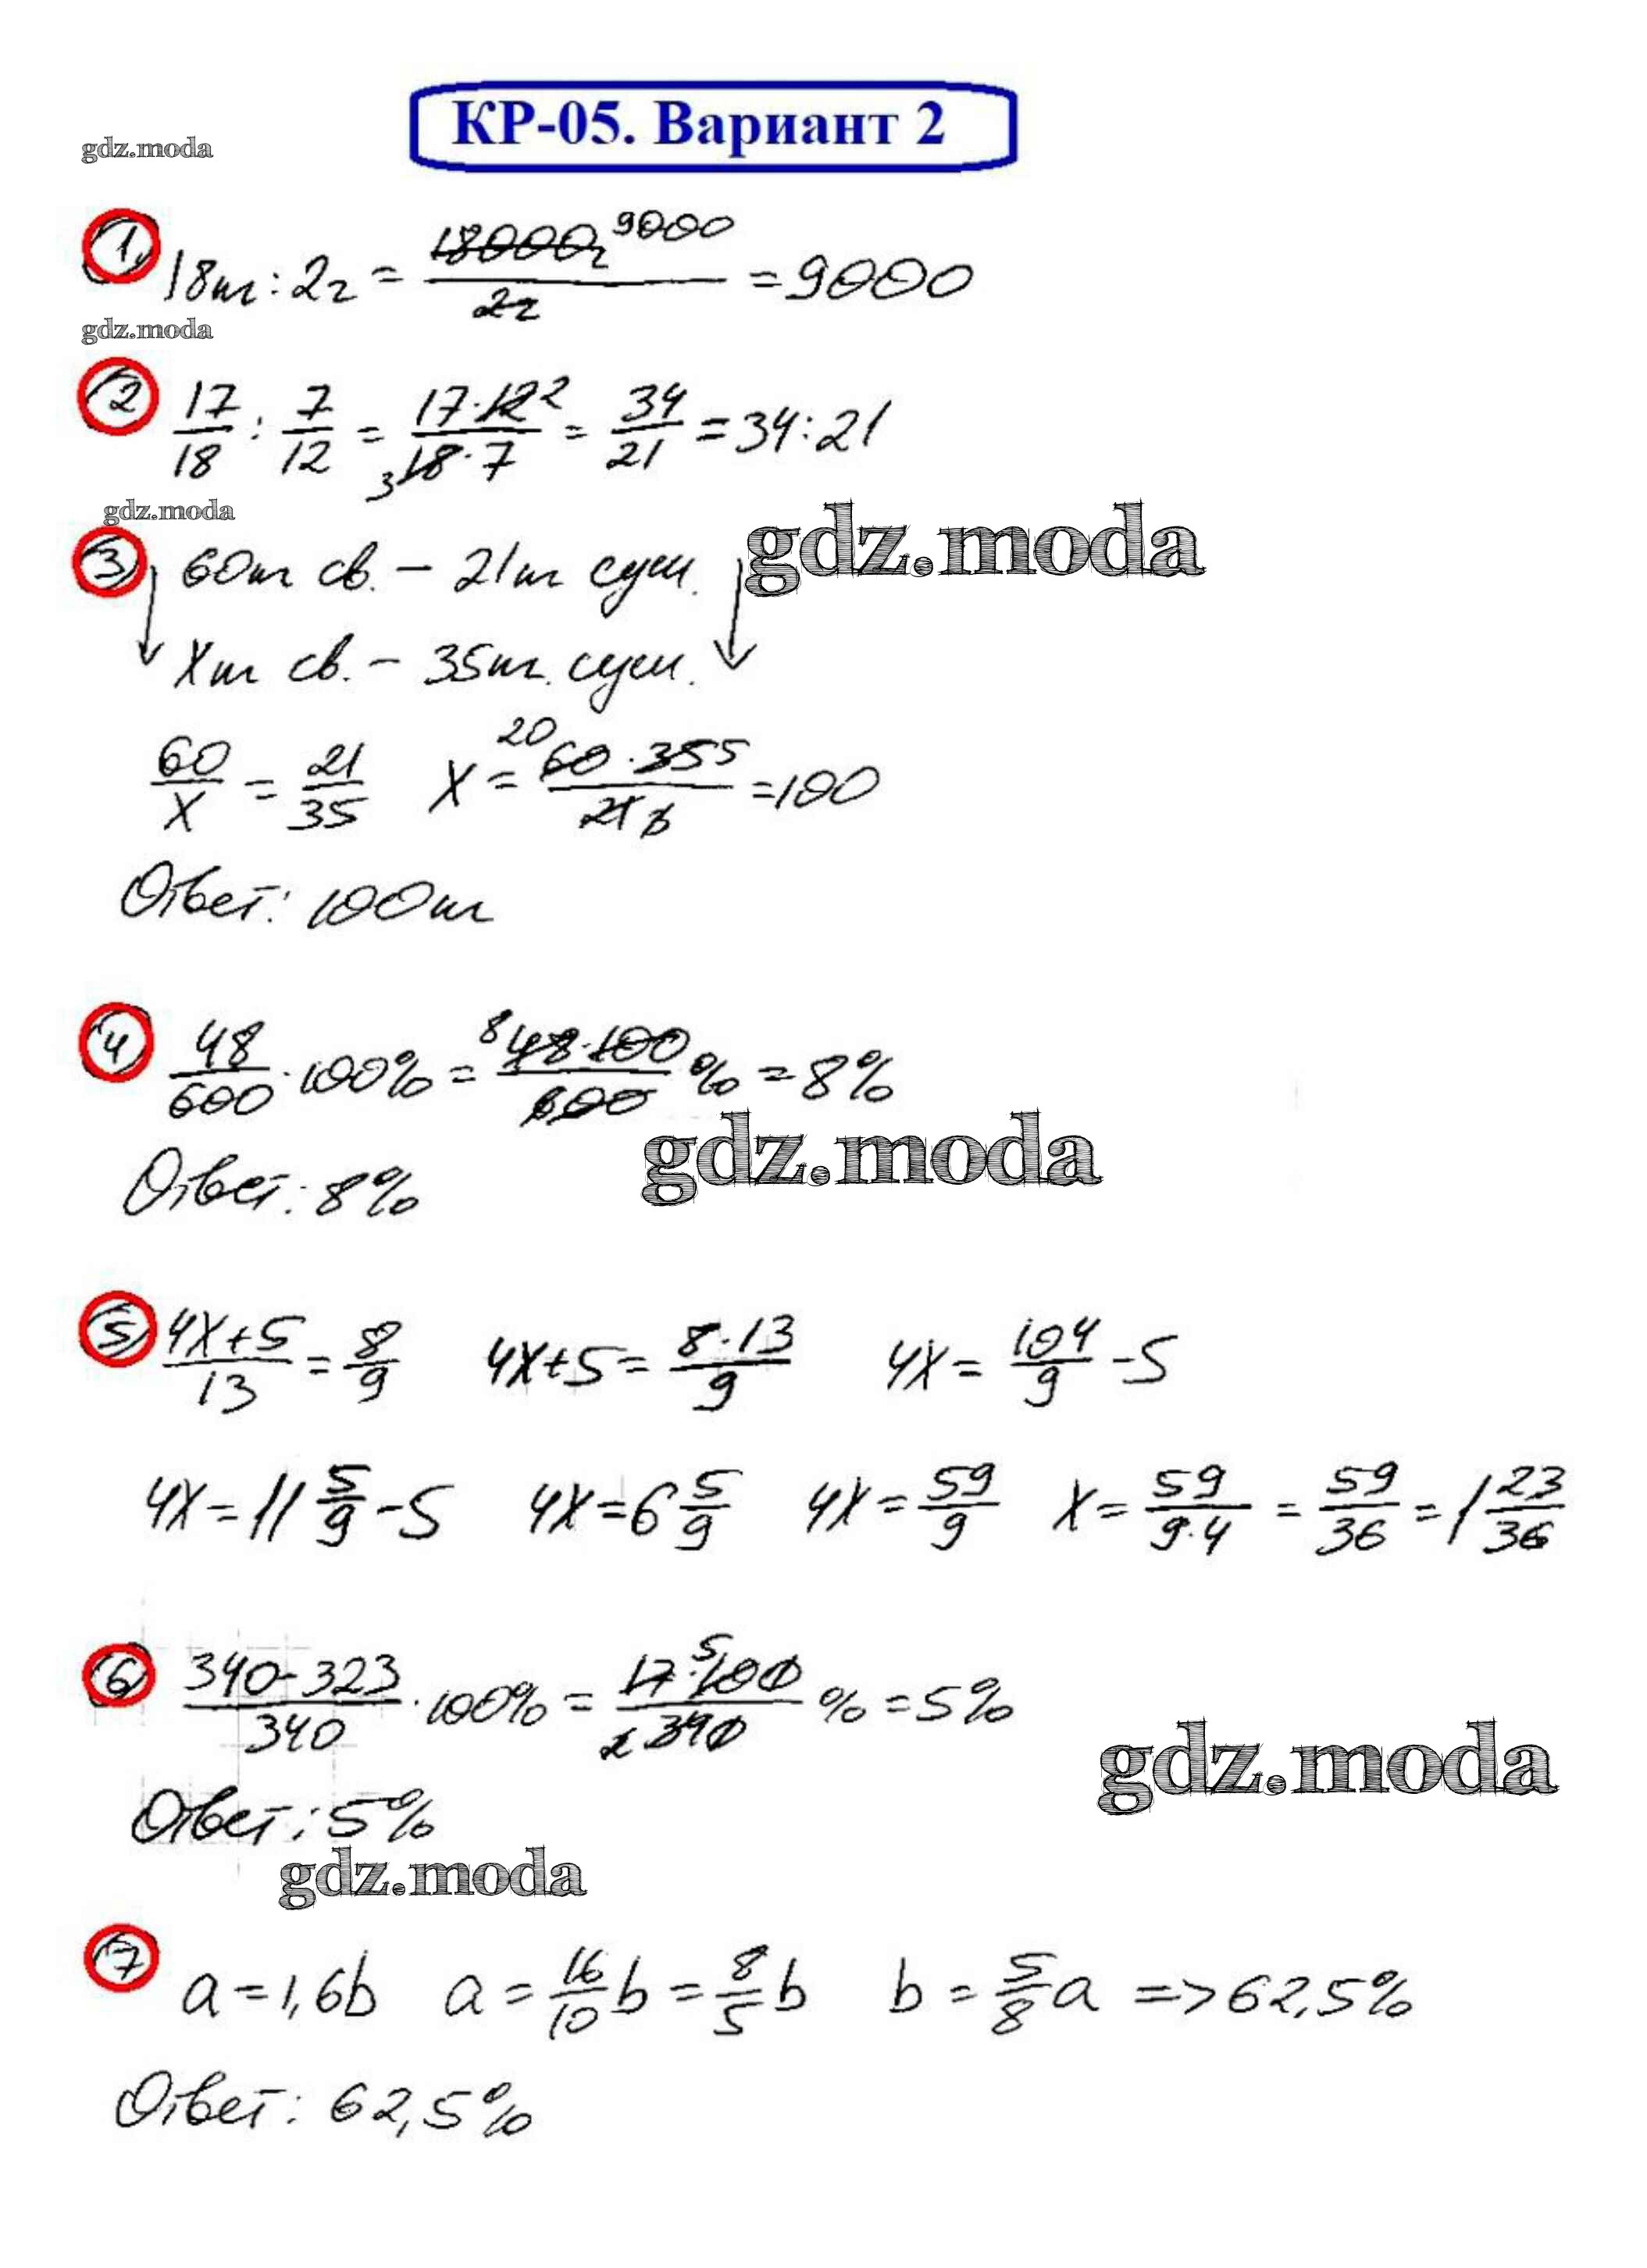 КР-05. Вариант 2
gdz.moda
1) 18т : 2г = 18000г 9000 / 2г = 9000
gdz.moda
2) 17/18 : 7/12 = 17·12 2 / 3 18·7 = 34/21 = 34:21
gdz.moda
3) 60т св. – 21т суш.
gdz.moda
Xт св. – 35т. суш.
60/X = 21/35 X = 20 60·35 5 / 21 3 = 100
Ответ: 100т
4) 48/600 · 100% = 8 48·100 / 600 % = 8%
gdz.moda
Ответ: 8%
5) 4X+5/13 = 8/9 4X+5 = 8·13/9 4X = 104/9 – 5
4X = 11 5/9 – 5 4X = 6 5/9 4X = 59/9 X = 59/9·4 = 59/36 = 1 23/36
6) 340-323/340 · 100% = 17· 5 100 / 2 340 % = 5%
gdz.moda
Ответ: 5%
gdz.moda
7) a = 1,6b a = 16/10 b = 8/5 b b = 5/8 a => 62,5%
Ответ: 62,5%